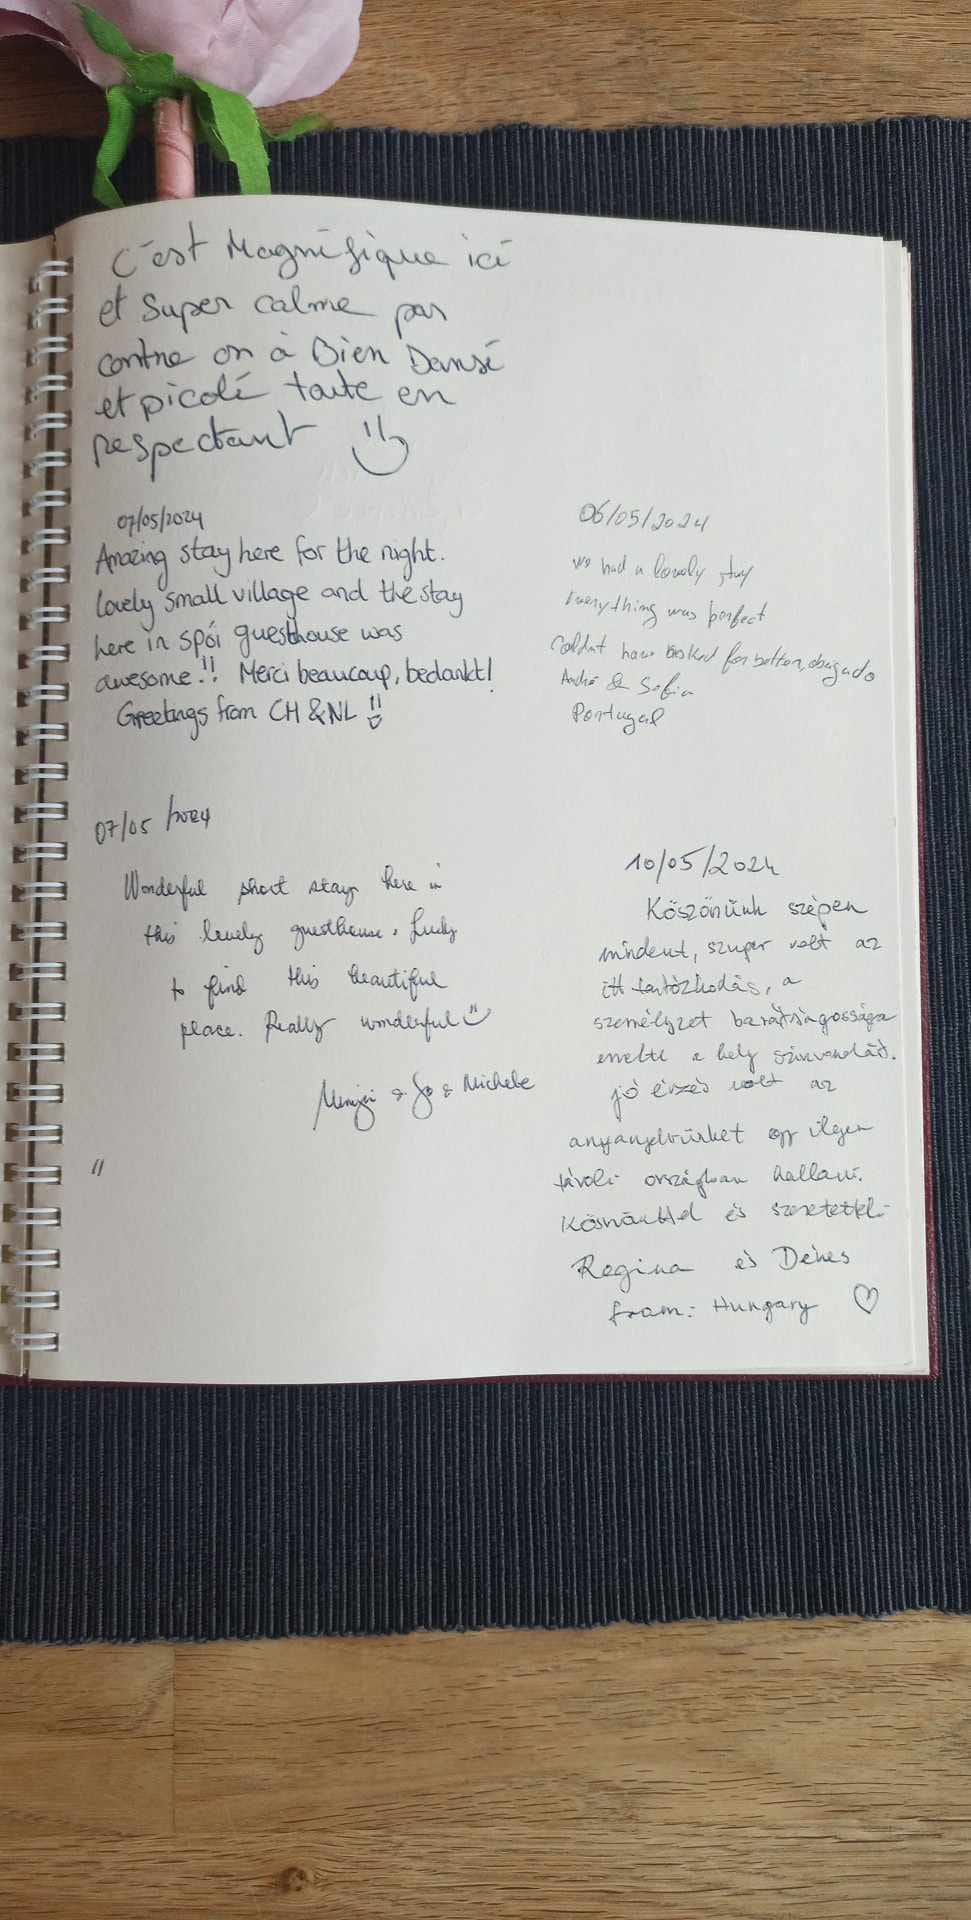 C'est Magnifique ici
et super calme par
contre on à Bien Dansé
et picolé toute en
respectant
07/05/2024
Amazing stay here for the night.
Lovely small village and the stay
here in Spói guesthouse was
awesome!! Merci beaucoup, bedankt!
Greetings from CH & NL
06/05/2024
we had a lovely stay
everything was perfect
Couldnt have asked for better, obrigado
André & Sofia
Portugal
07/05/2024
Wonderful short stay here in
this lovely guesthouse. Lucky
to find this beautiful
place. Really wonderful
& Jo & Michele
10/05/2024
Köszönünk szépen
mindent, szuper volt az
itt tartózkodás, a
személyzet barátságossága
emelte a hely színvonalát.
jó érzés volt az
anyanyelvünket egy ilyen
távoli országban hallani.
Köszönettel és szeretettel:
Regina és Dénes
from: Hungary